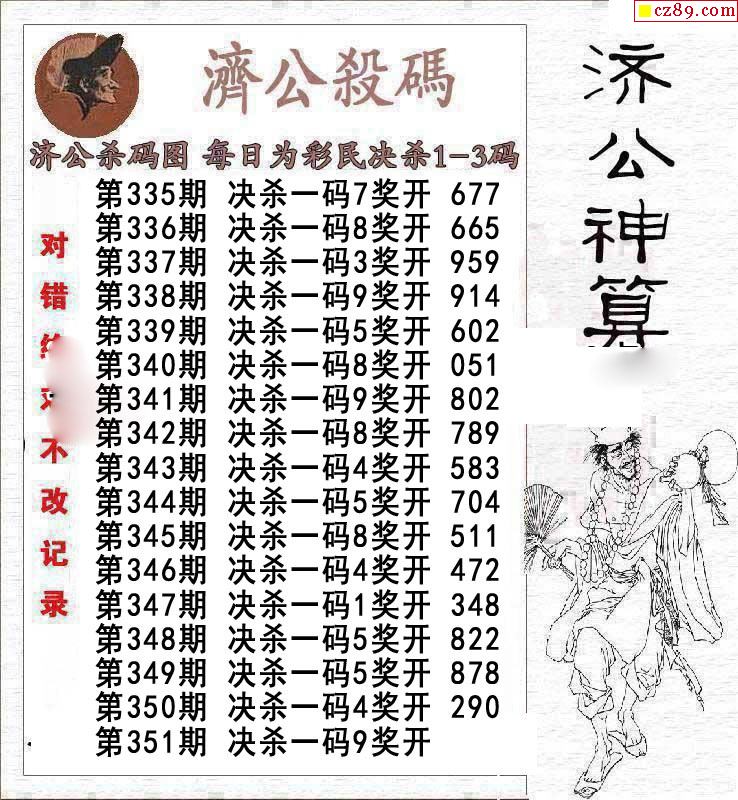 cz89.com
濟公殺碼
济公杀码图 每日为彩民决杀1-3码
第335期 决杀一码7奖开 677
第336期 决杀一码8奖开 665
第337期 决杀一码3奖开 959
第338期 决杀一码9奖开 914
第339期 决杀一码5奖开 602
第340期 决杀一码8奖开 051
第341期 决杀一码9奖开 802
第342期 决杀一码8奖开 789
第343期 决杀一码4奖开 583
第344期 决杀一码5奖开 704
第345期 决杀一码8奖开 511
第346期 决杀一码4奖开 472
第347期 决杀一码1奖开 348
第348期 决杀一码5奖开 822
第349期 决杀一码5奖开 878
第350期 决杀一码4奖开 290
第351期 决杀一码9奖开
对错不改记录
济公神算